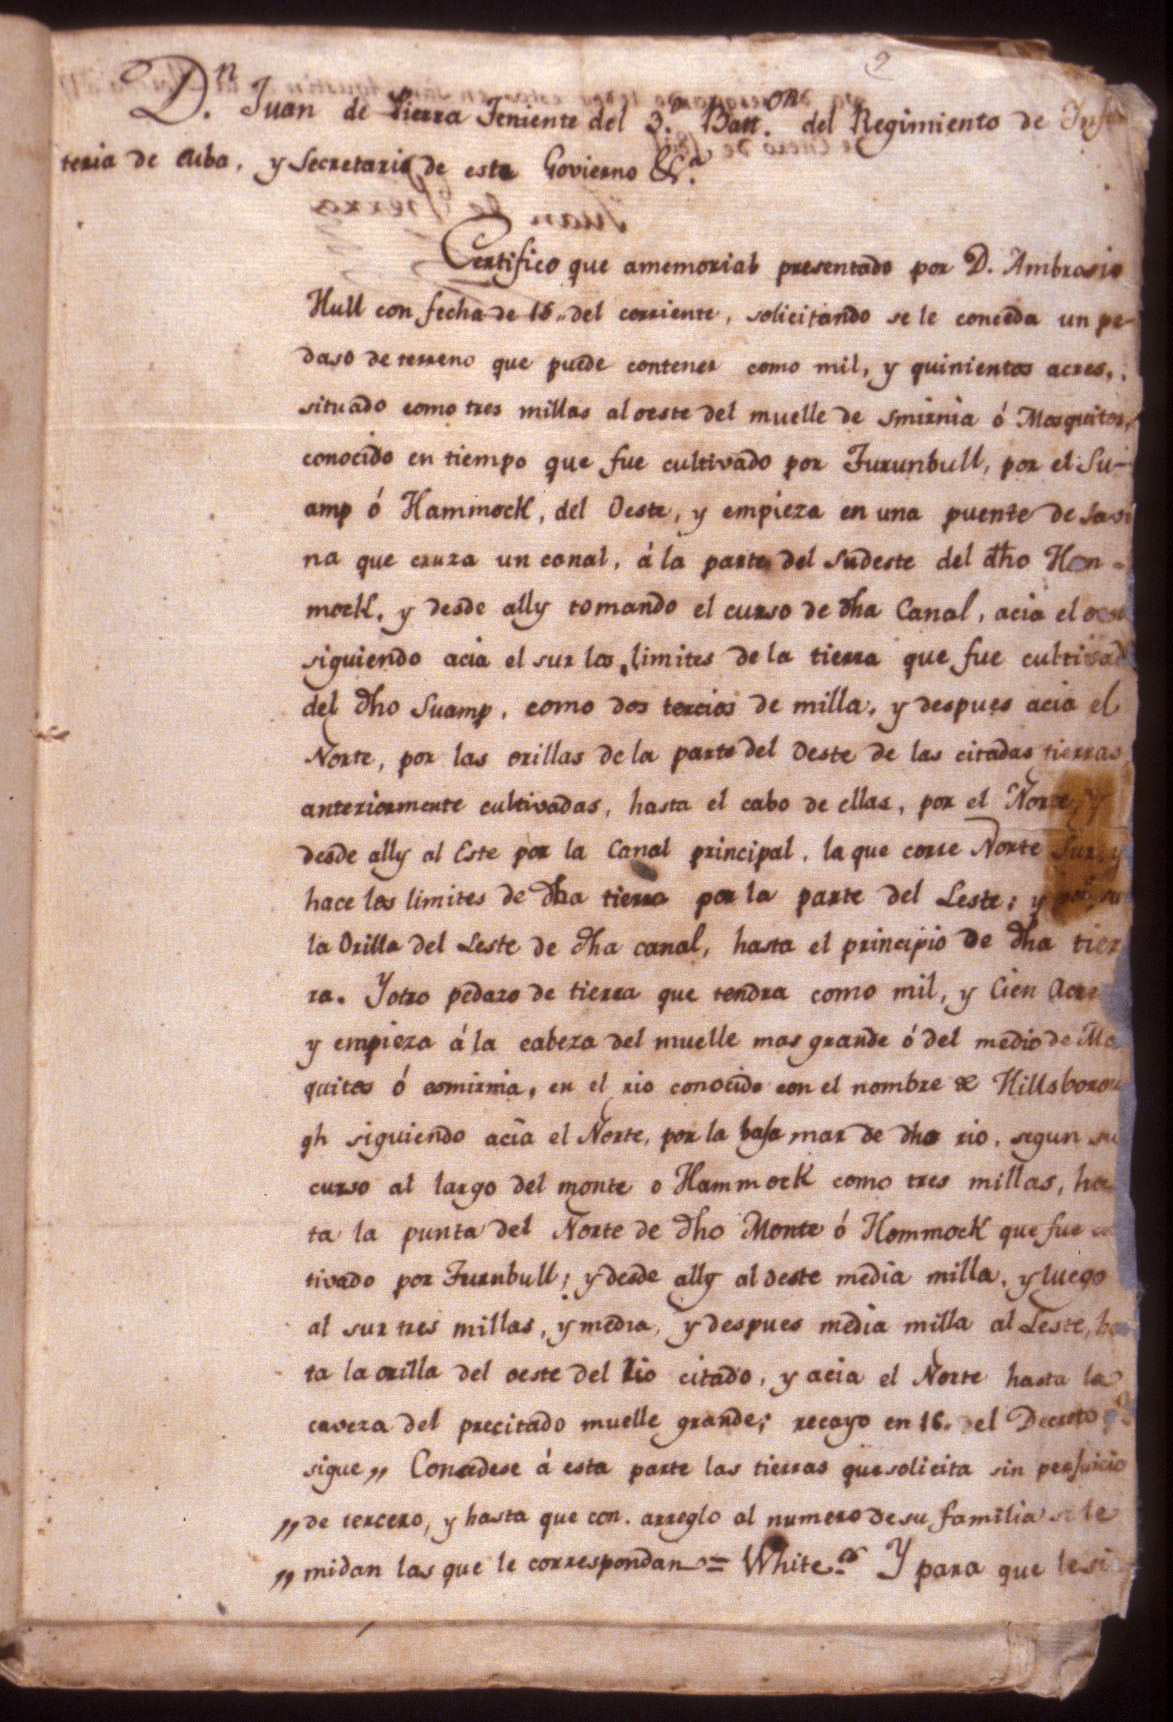 2
Dn. Juan de Pierra Teniente del 3.r Batt.on del Regimiento de Infan
teria de Cuba, y Secretario de este Govierno &.a
Certifico que amemorial presentado por D. Ambrosio
Hull con fecha de 16,, del corriente, solicitando se le conceda un pe-
daso de terreno que puede contener como mil, y quinientos acres,
situado como tres millas al oeste del muelle de Smirnia ó Mosquitos,
conocido en tiempo que fue cultivado por Turunbull, por el Su-
amp ó Hammock, del Oeste, y empieza en una puente de Savi
na que cruza un canal, á la parte del Sudeste del dho Ham-
mock, y desde ally tomando el curso de dha Canal, acia el oeste
siguiendo acia el sur los limites de la tierra que fue cultivad
del dho Suamp, como dos tercios de milla, y despues acia el
Norte, por las orillas de la parte del Oeste de las citadas tierras
anteriormente cultivadas, hasta el cabo de ellas, por el Norte, y
desde ally al Este por la Canal principal, la que corre Norte Sur, y
hace los limites de dha tierra por la parte del Leste; y
la Orilla del Leste de dha canal, hasta el principio de dha tier
ra. Y otro pedazo de tierra que tendra como mil, y Cien Acre
y empieza á la cabeza del muelle mas grande ó del medio de Mo
quitos ó esmirnia, en el rio conocido con el nombre de Hillsborou
gh siguiendo acia el Norte, por la baja mar de dho rio, segun su
curso al largo del monte o Hammock como tres millas, has
ta la punta del Norte de dho Monte ó Hommock que fue
tivado por Turnbull; y desde ally al oeste media milla, y luego
al sur tres millas, y media, y despues media milla al Leste, has
ta la orilla del oeste del Rio citado, y acia el Norte hasta la
caveza del precitado muelle grande; recayo en 16,, el Decreto q.e
sigue,, Concedese á esta parte las tierras que solicita sin perjuicio
,, de tercero, y hasta que con arreglo al numero de su familia se le
,, midan las que le correspondan = White = Y para que le si